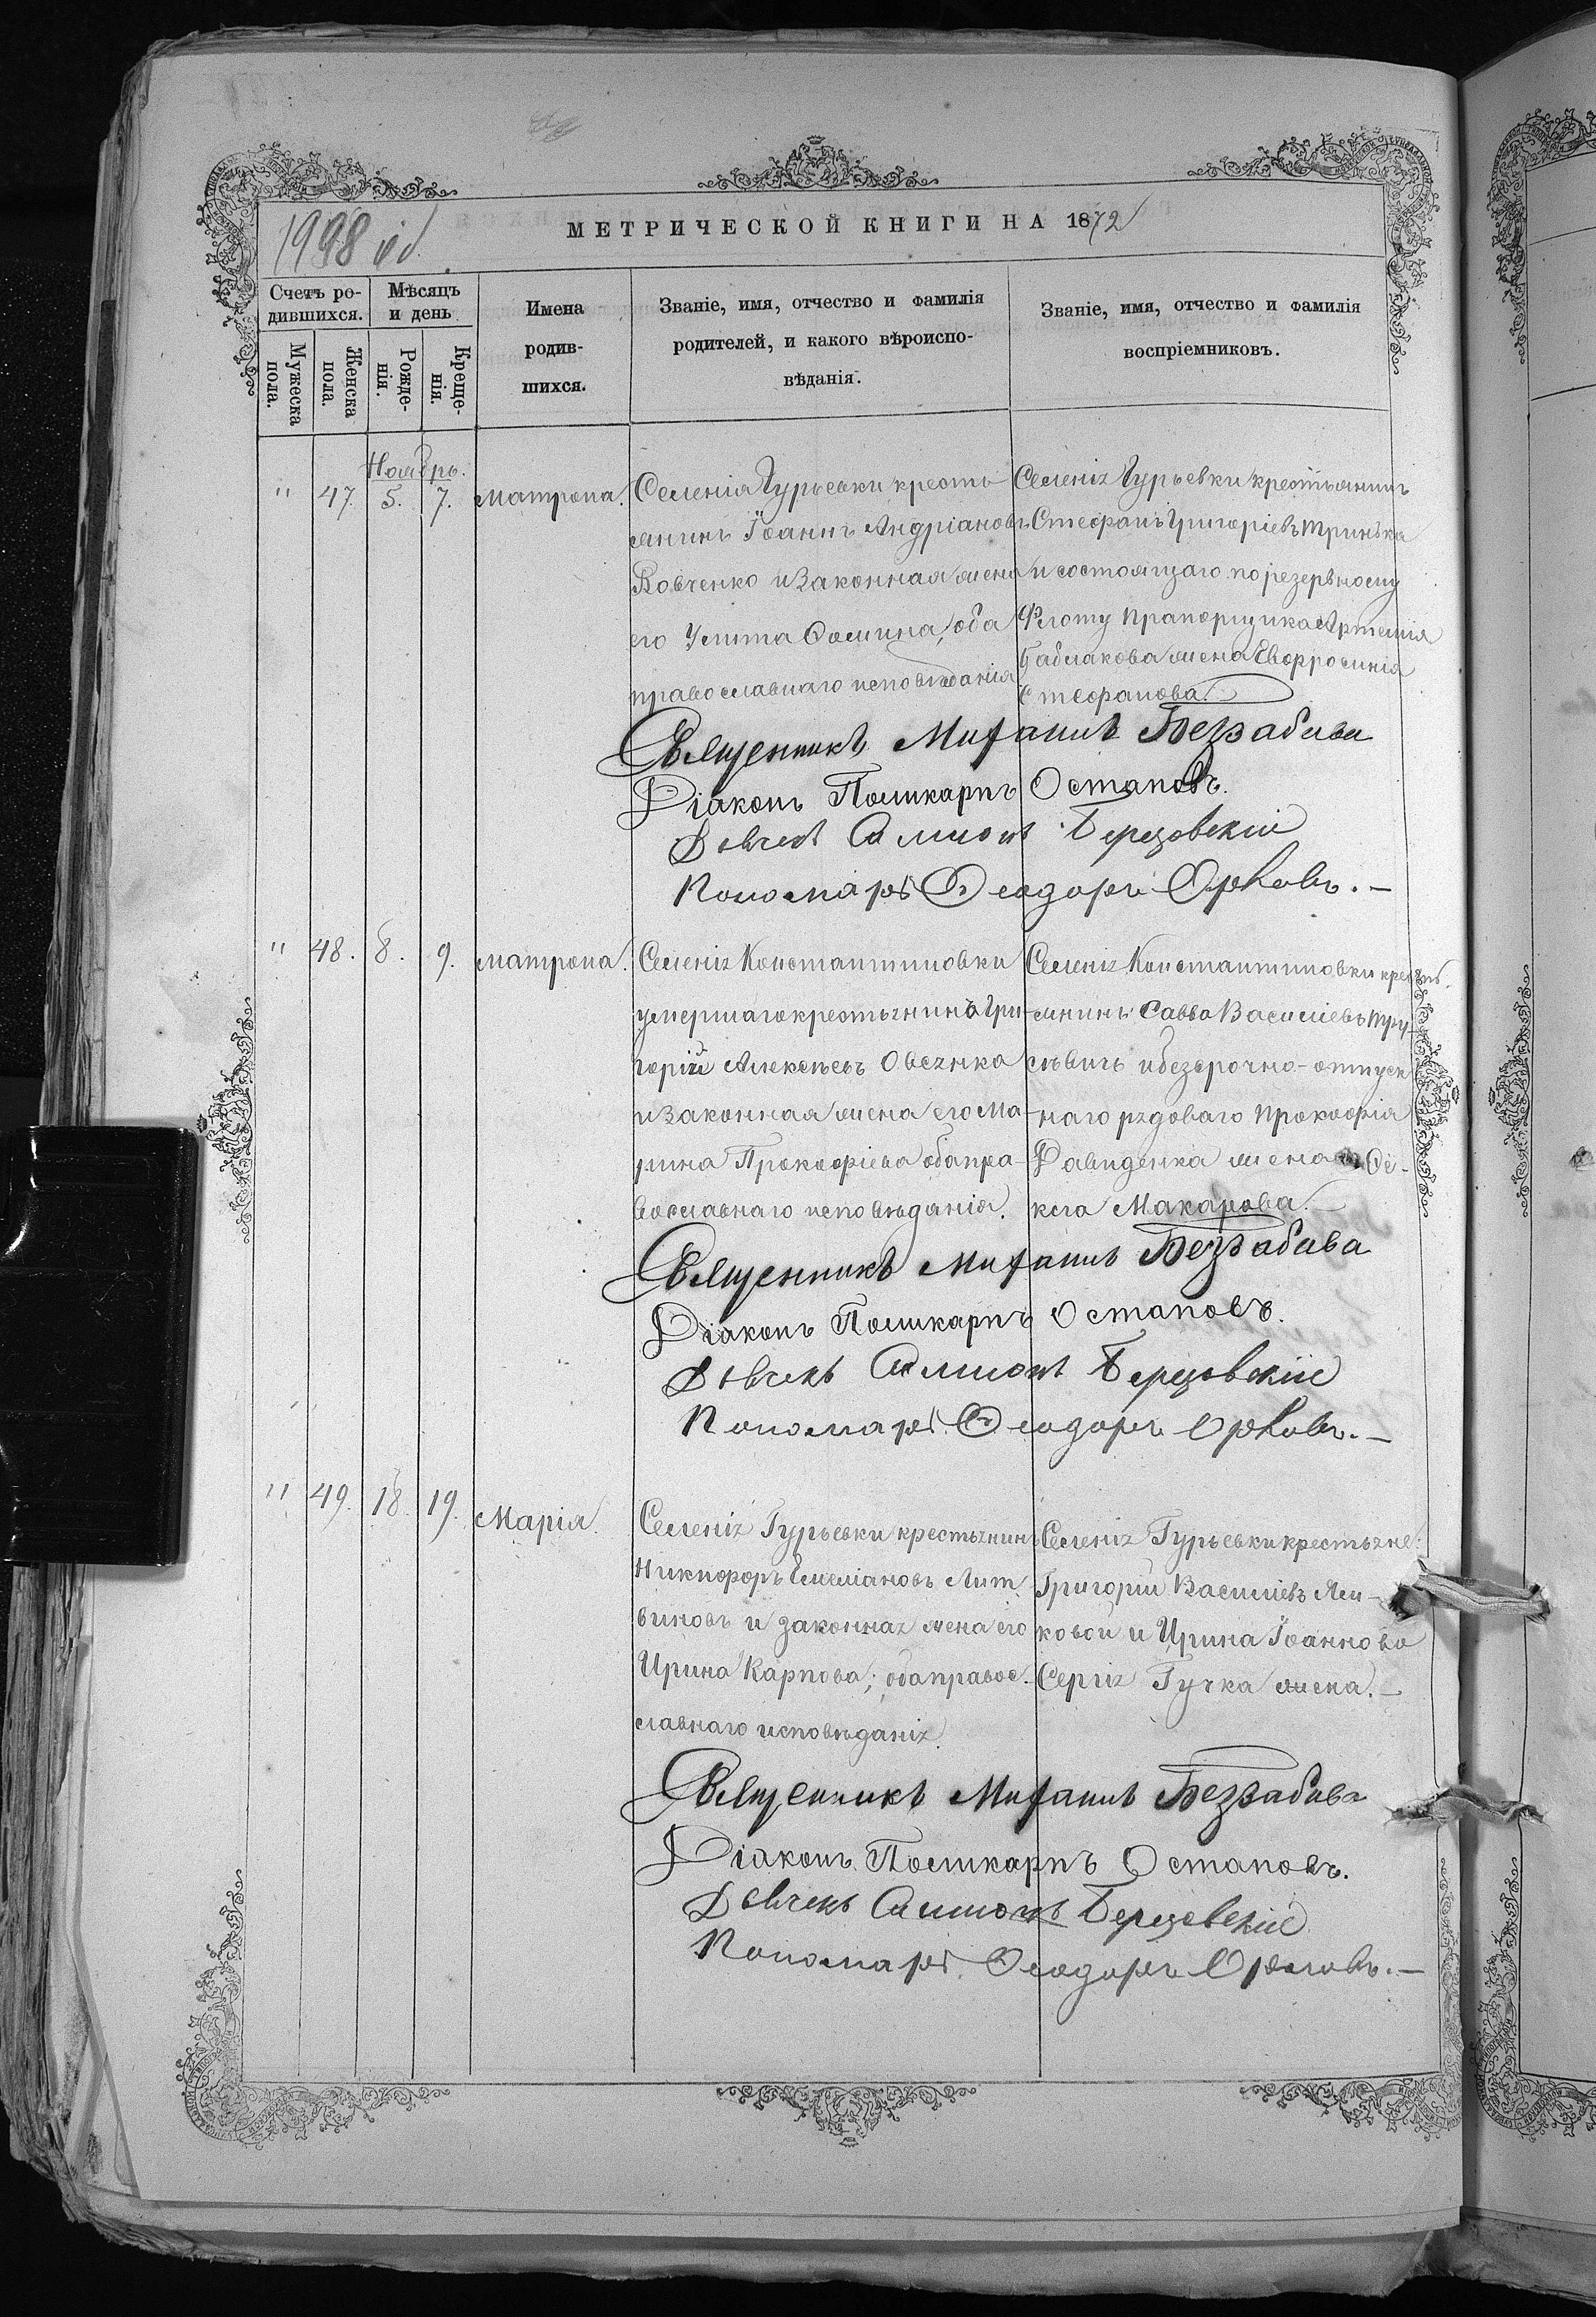 1998 об.
МЕТРИЧЕСКОЙ КНИГИ НА 1872
Счетъ ро-
дившихся.
Мѣсяцъ
и день
Мужеска
пола.
Женска
пола.
Рожде-
нія.
Креще-
нія.
Имена
родив-
шихся.
Званіе, имя, отчество и фамилія
родителей, и какого вѣроиспо-
вѣданія.
Званіе, имя, отчество и фамилія
воспріемниковъ.
Ноябрь.
" 47. 5. 7. Матрона.
Селенія Гурьевки кресть-
янинъ Іоаннъ Андріановъ
Вовченко и законная жена
его Улита Фомина, оба
православнаго исповѣданія
Селенія Гурьевки крестьянинъ
Стефанъ Григоріевъ Тринька
и состоящаго по резервному
Флоту Прапорщика Артемія
Бабмакова жена Евфросинія
Стефанова.
Священникъ Михаилъ Беззабава
Діаконъ Поликарпъ Остаповъ.
Дьячекъ Симеонъ Березовскій
Пономарь Ѳеодоръ Орловъ.—
" 48. 8. 9. Матрона.
Селенія Константиновки
умершаго крестьянина Гри-
горій Алексѣевъ Овсянка
и законная жена его Ма-
рина Прокофіева оба пра-
вославнаго исповѣданія.
Селенія Константиновки крестъ-
янинъ Савва Василіевъ
и безсрочно-отпуск
наго рядоваго Прокофія
Давиденка жена Ѳе-
кла Макарова.—
Священникъ Михаилъ Беззабава
Діаконъ Поликарпъ Остаповъ.
Дьячекъ Симеонъ Березовскій
Пономарь Ѳеодоръ Орловъ.—
" 49. 18. 19. Марія.
Селенія Гурьевки крестьянинъ
Никифоръ Емеліановъ Лит-
виновъ и законная жена его
Ирина Карпова; оба правос-
славнаго исповѣданія.
Селенія Гурьевки крестьяне:
Григорій Василіевъ Яли-
ковой и Ирина Іоаннова
Сергія Гучка жена.—
Священникъ Михаилъ Беззабава
Діаконъ Поликарпъ Остаповъ.
Дьячекъ Симеонъ Березовскій
Пономарь Ѳеодоръ Орловъ.—